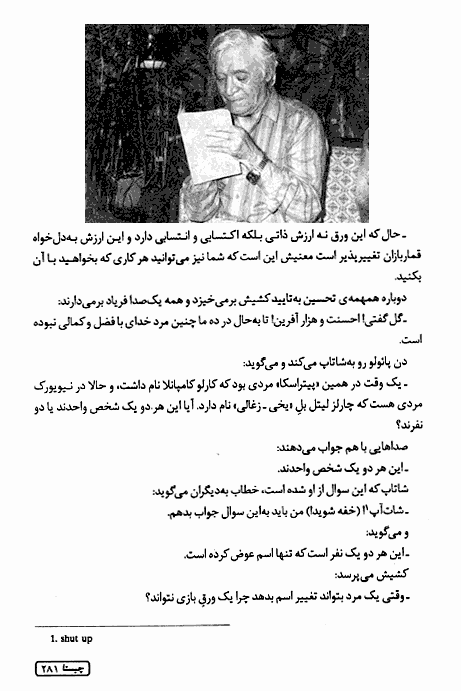 ـ حال که این ورق نه ارزش ذاتی بلکه اکتسابی و انتسابی دارد و این ارزش به‌دل‌خواه
قماربازان تغییرپذیر است معنیش این است که شما نیز می‌توانید هر کاری که بخواهید با آن
بکنید.
دوباره همهمه‌ی تحسین به‌تایید کشیش برمی‌خیزد و همه یک‌صدا فریاد برمی‌دارند:
ـ گل گفتی! احسنت و هزار آفرین! تا به‌حال در ده ما چنین مرد خدای با فضل و کمالی نبوده
است.
دن پائولو رو به‌شاتاپ می‌کند و می‌گوید:
ـ یک وقت در همین «پیتراسکا» مردی بود که کارلو کامپانلا نام داشت، و حالا در نیویورک
مردی هست که چارلز لیتل بل «یخی ـ زغالی» نام دارد. آیا این هر دو یک شخص واحدند یا دو
نفرند؟
صداهایی با هم جواب می‌دهند:
ـ این هر دو یک شخص واحدند.
شاتاپ که این سوال از او شده است، خطاب به‌دیگران می‌گوید:
ـ شات‌آپ۱! (خفه شوید!) من باید به‌این سوال جواب بدهم.
و می‌گوید:
ـ این هر دو یک نفر است که تنها اسم عوض کرده است.
کشیش می‌پرسد:
ـ وقتی یک مرد بتواند تغییر اسم بدهد چرا یک ورق بازی نتواند؟
1. shut up
چیستا ۲۸۱